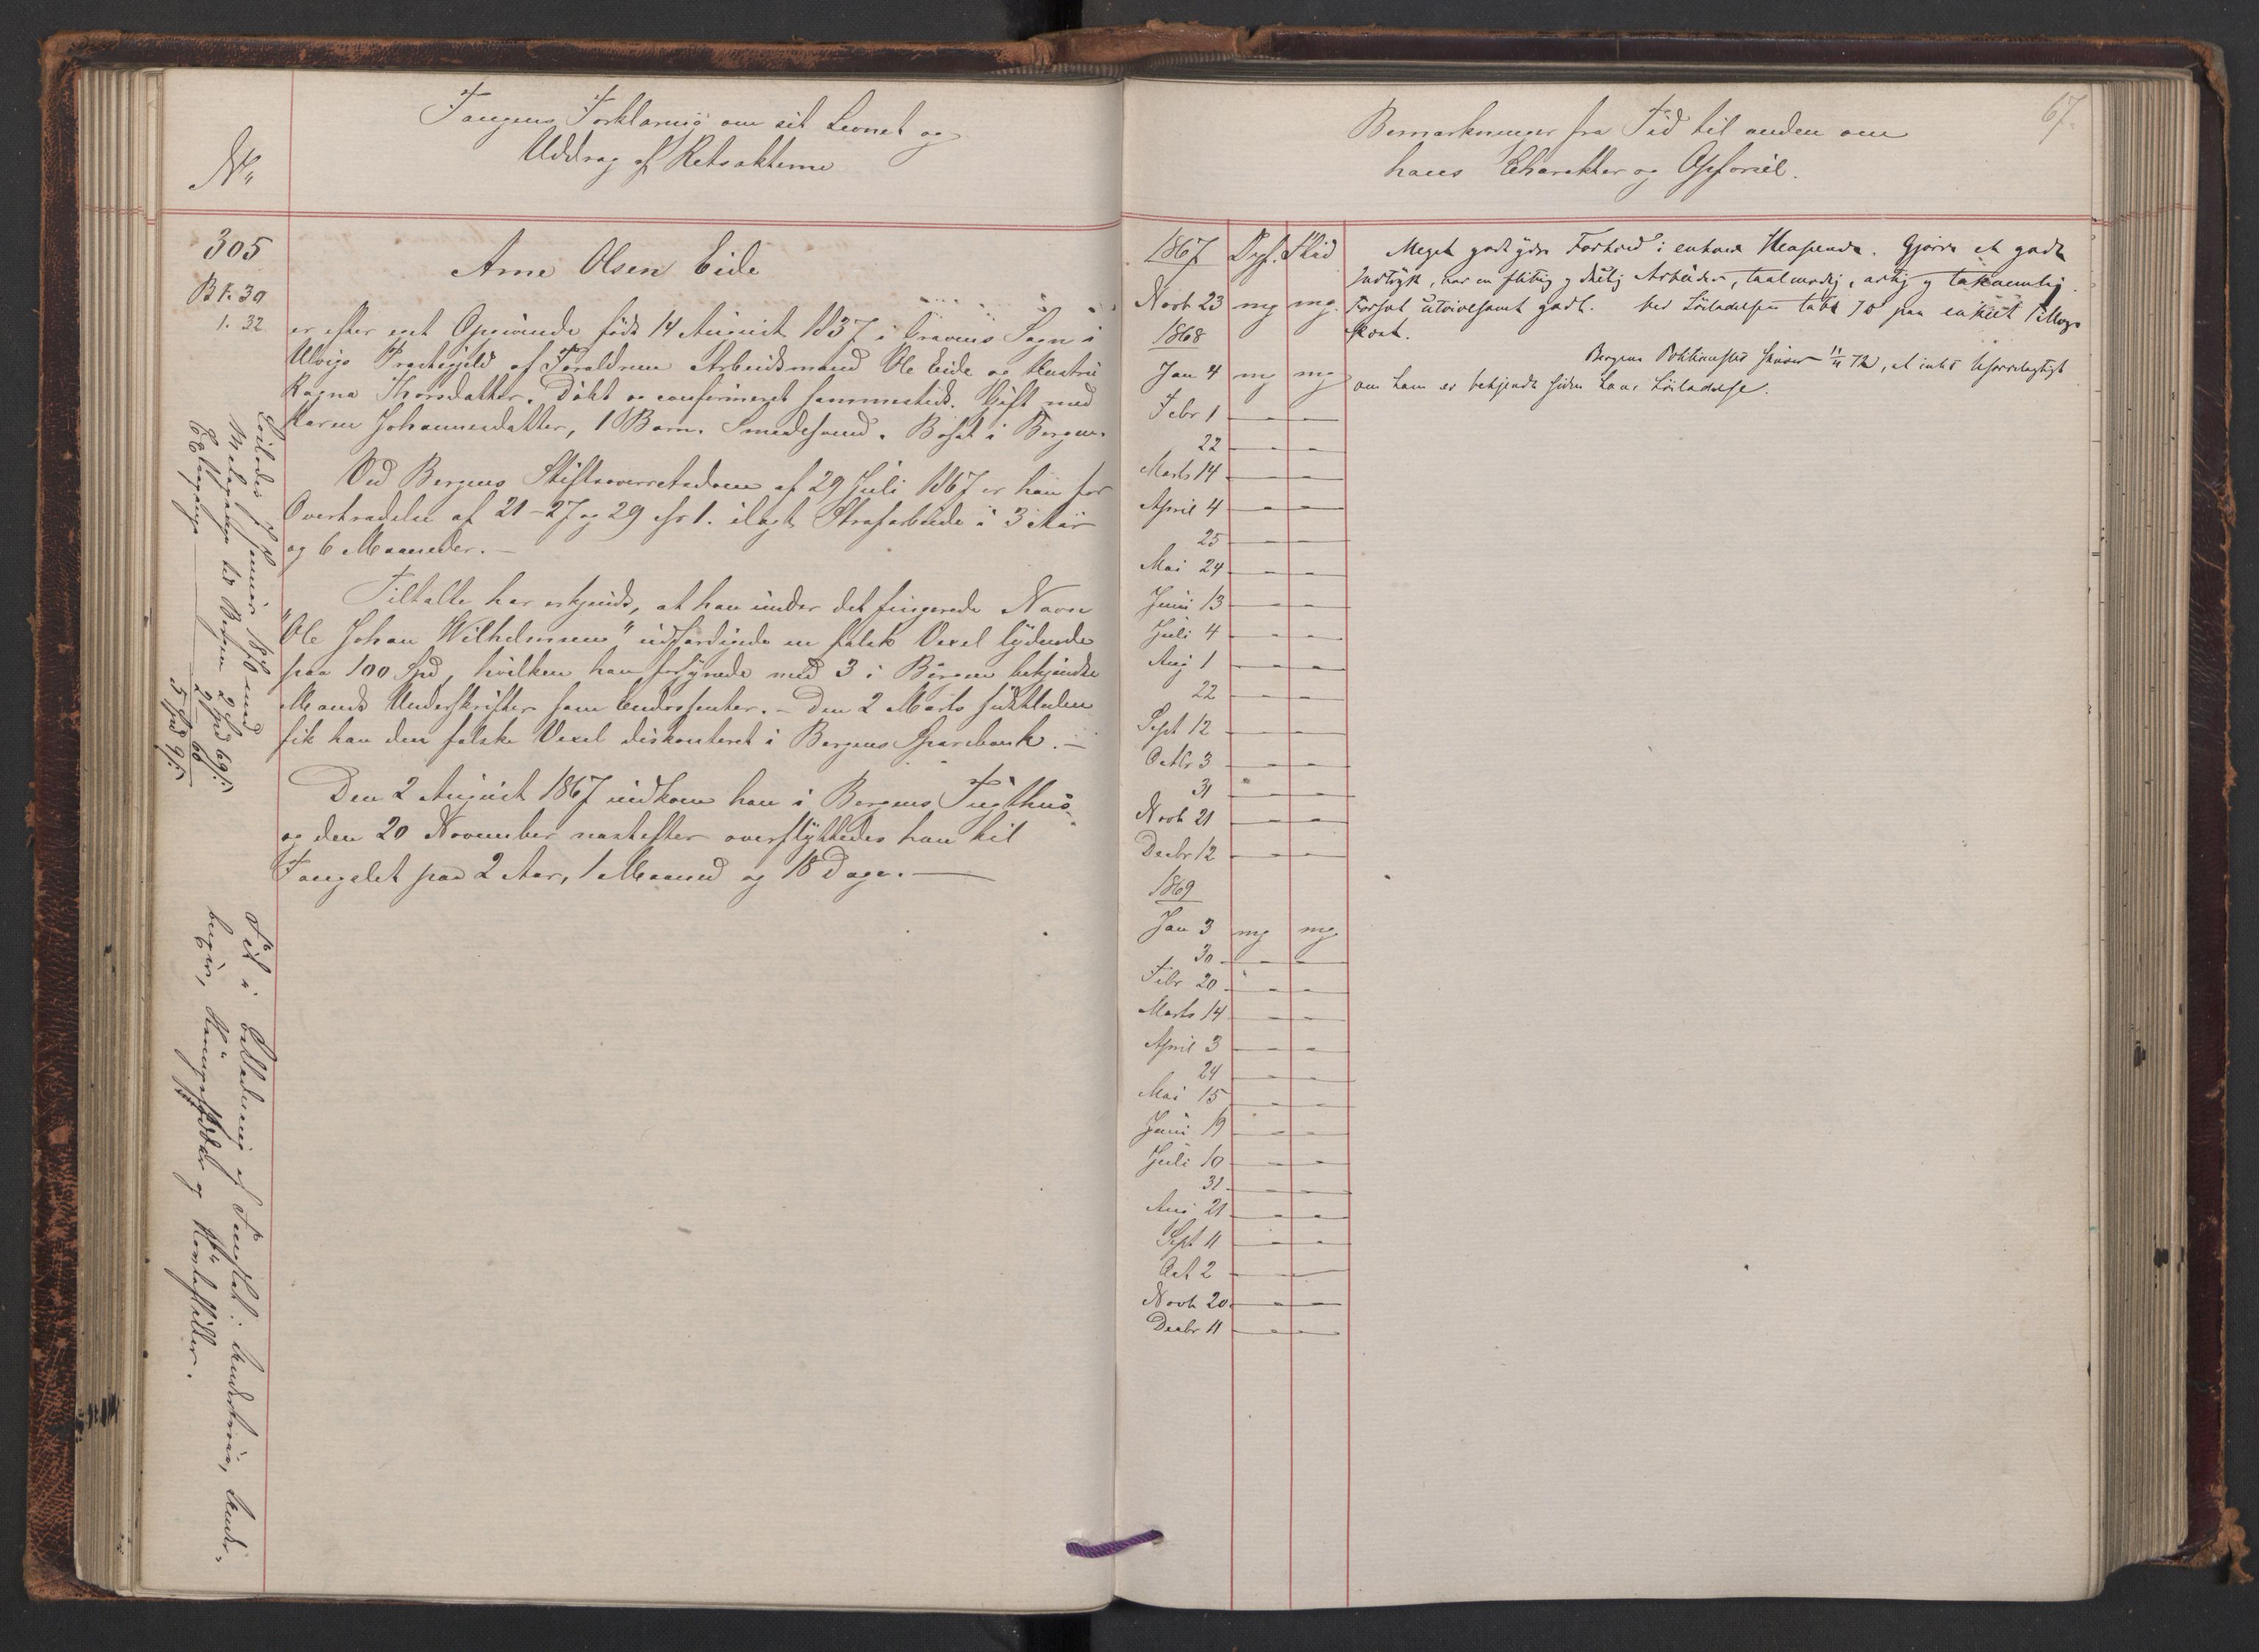 Fangens Forklaring om sit Levnet og
Uddrag af Retsakterne
No
305
B 1. 30
1. 32
Arne Olsen Eide
er efter eget Opgivende født 14 August 1837 i Gravens Sogn i
Ulvigs Præstegjeld af Forældrene Arbeidsmand Ole Eide og Hustru
Ragna Thorsdatter. Døbt og confirmeret sammesteds. Gift med
Karen Johannesdatter, 1 Barn. Smedesvend. Bosat i Bergen.
Ved Bergens Stiftsoverretsdom af 29 Juli 1867 er han for
Overtrædelse af 21-27 og 29 cfr 1. ilagt Strafarbeide i 3 Aar
og 6 Maaneder.
Tiltalte har erkjendt, at han under det fingerede Navn
"Ole Johan Wilhelmsen" udfærdigede en falsk Vexel lydende
paa 100 Spd, hvilken han forsynede med 3 i Bergen bekjendte
Mænds Underskrifter som Endossenter. - Den 2 Marts sidstleden
fik han den falske Vexel diskonteret i Bergens Sparebank.
Den 2 August 1867 indkom han i Bergens Tugthus
og den 20 November næstefter overflyttedes han hil
Fængslet paa 2 Aar, 1 Maaned og 18 Dage.
Løslades Januar 1870 med
Medagange til Bergen 2 Spd 69 ß
Extrapenge 2 Spd 60
5 Spd 9 ß
Fik i Beklædning af Fængslet:
67.
Bemærkninger fra Tid til anden om
hans Charakter og Opførsel.
1867 Opf. Flid
Novb 23 mg mg.
1868
Jan 4 mg mg
Febr 1 - -
22 - -
Marts 14 - -
April 4 - -
25 - -
Mai 24 - -
Juni 13 - -
Juli 4 - -
Aug 1 - -
22 - -
Sept 12 - -
Octbr 3 - -
31 - -
Novb 21 - -
Decbr 12 - -
1869
Jan 3 mg mg
30 - -
Febr 20 - -
Marts 14 - -
April 3 - -
24 - -
Mai 15 - -
Juni 19 - -
Juli 10 - -
31 - -
Aug 21 - -
Sept 11 - -
Oct 2 - -
Novb 20 - -
Decbr 11 - -
Meget godt Forhold i enhver Henseende. Gjorde et godt
Indtryk, var en flittig og duelig Arbeider, taalmodig, artig og taknemlig.
Forsæt utvivlsomt godt. Ved Løsladelsen
Bergens Politikammer skriver 11/11 72, at intet ufordelagtigt
om ham er bekjendt siden hans Løsladelse.